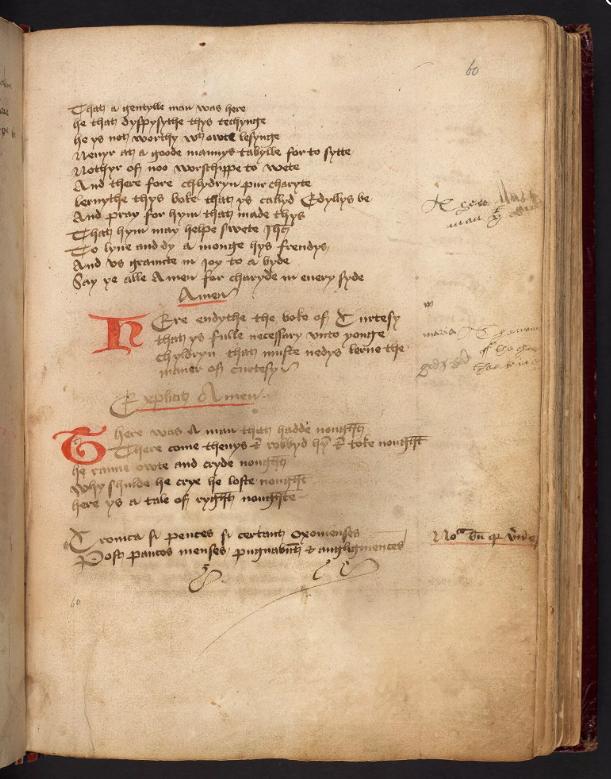 60
That a gentylle man was here
he that dyspysythe thys techynge
he ys not worthy wt owte lesynge
Nevyr at a goode mannys tabylle for to sytte
Nothyr of noo worschippe to wete
And there fore chyldryn pur charyte
lernythe thys boke that ys callyd Edyllys be
And pray for hym that made thys
That hym may helpe swete Jhu
To lyve and dy a monge hys frendys
And us graunte in joy to a byde
Say ye alle Amen for charyde in every syde
Amen
Here endythe the boke of Curtesy
that ys fulle necessary unto yonge
chyldryn that muste nedys lerne the
maner of curtesy
Explicit Amen
There was A man that hadde nought
There come thevys & robbyd hym & toke nought
he ranne owte and cryde nought
Why shulde he crye he loste nought
here ys a tale of ryght nought
Cronica si pentes si certant Oxonienses
Post paucos menses pugnabunt & angliginenses
60